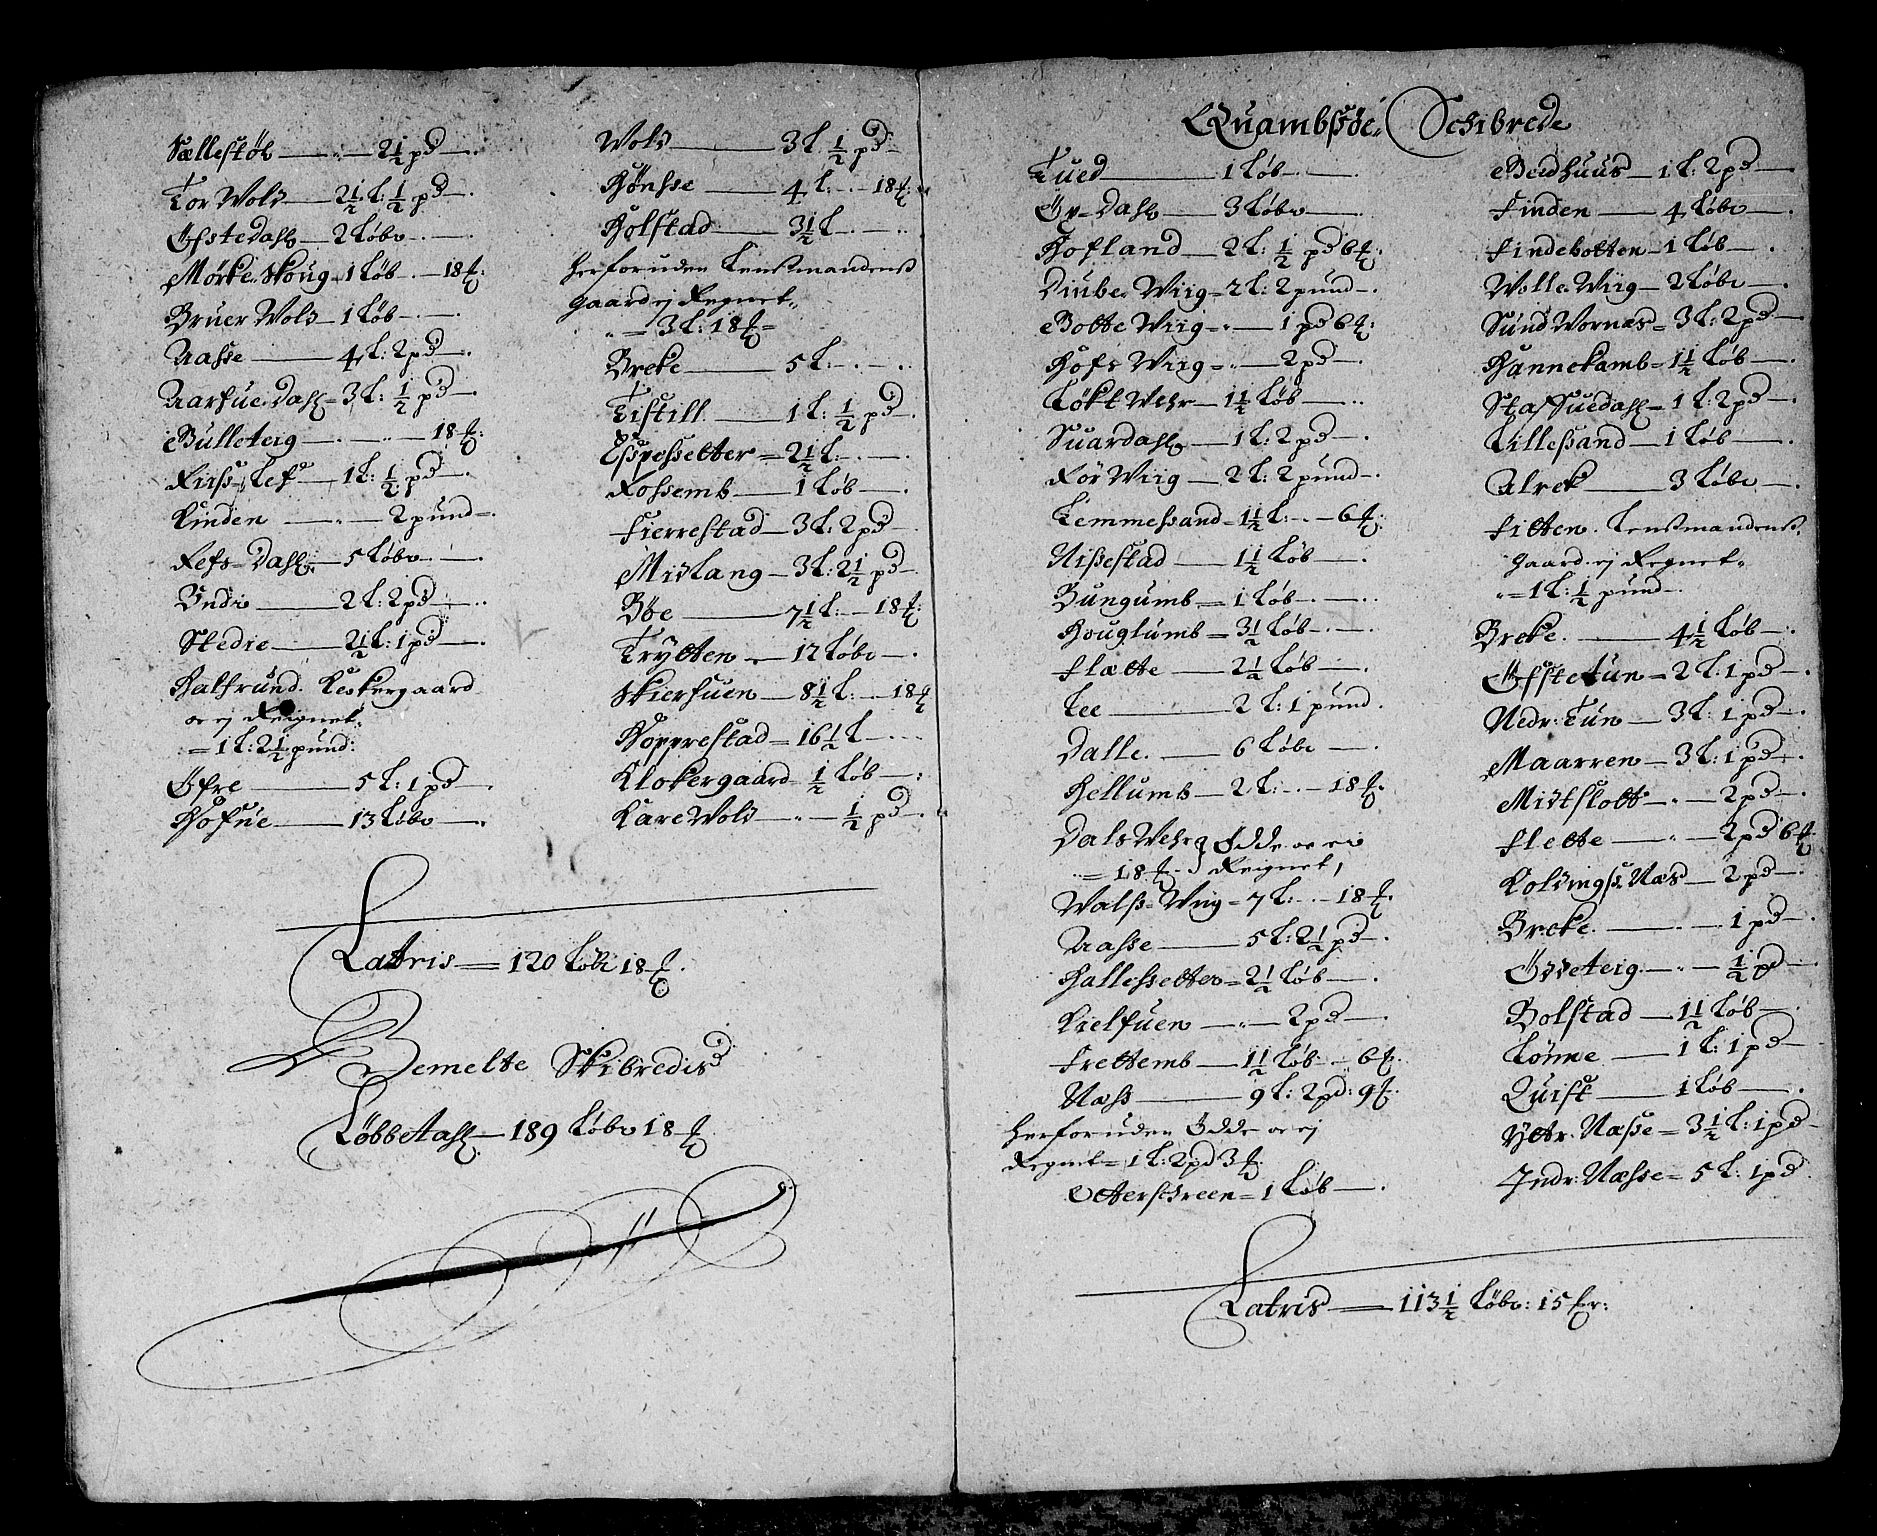 Sællestøl — „ — 2½ pd —
Tor Wold — 2½ L: ½ pd —
Øfstedahl — 2 Løbe —
Mørke Skoug — 1 Løb — 18 ℔:
Bruer Wold — 1 Løb —
Aasse — 4 L: 2 pd —
Aarfue Dahl — 3 L: ½ pd —
Bulleteig — „ — 18 ℔:
Riiss Lef — 1 L: ½ pd —
Rinden — „ — 2 pund —
Refs Dahl — 5 Løbe —
Vndi — 2 L: 2 pd —
Stedie — 2½ L: 1 pd —
Halfrund Klokergaard
er ej Reignet
= 1 L: 2½ pund:
Øfre — 5 L: 1 pd —
Hofue — 13 Løbe —
Wold — 3 L ½ pd —
Hønsse — 4 L: — 18 ℔
Holstad — 3½ L —
herforuden Lensmandens
gaard ej Regnet
„ = 3 L: 18 ℔ =
Breke — 5 L: —
Tistill — 1 L: ½ pd —
Essposetter = 2½ L: —
Rossemb — 1 Løb —
Fierrestad — 3 L: 2 pd
Midlang — 3 L: 2½ pd —
Bøe — 7½ L: — 18 ℔:
Trytten — 12 Løbe —
Skierfuen — 8½ L: — 18 ℔
Hopprestad = 16½ L —
Klokergaard — ½ Løb —:
Kare Wold — „ — ½ pd —
Latris = 120 Løbe 18 ℔.
Bemelte Skibredis
Løbbetahl — 189 Løbe 18 ℔
Quambsøe Schibrede
Tued — 1 Løb —
Øv Dahl — 3 Løbe —
Hofland — 2 L: ½ pd 6 ℔:
Diube Wiig = 2 L: 2 pund —
Botte Wiig = „ — 1 pd 6 ℔:
Hofs Wiig = „ — 2 pd —
Løkt Wehr — 1½ Løb —
Suardahl — 1 L: 2 pd —
Rør Wiig — 2 L: 2 pund —
Lemmessand = 1½ L: — 6 ℔:
Nissestad — 1½ Løb —
Bungumb = 1 Løb —
Houglumb = 3½ Løb —
Flætte — 2½ Løb —
Lee — 2 L: 1 pund.
Dalle — 6 Løbe —
Hellumb — 2 L: — 18 ℔.
Dals Wehr Ødde er ei
= 18 ℔ Reignet,
Walss Wiig = 7 L: — 18 ℔.
Aasse — 5 L: 2½ pd —
Hallessetter = 2½ Løb —
Kielfuen — „ — 2 pd —
Frettemb — 1½ Løb: — 6 ℔.
Næss — 9 L: 2 pd: 9 ℔.
herforuden Ødde er ej
Regnet = 1 L: 2 pd 3 ℔.
Otterschreen = 1 Løb —
Bedhuus — 1 L: 2 pd —
Finden — 4 Løbe —
Findebotten — 1 Løb —
Wolle Wiig — 2 Løbe —
Sund Wornæs = 3 L: 2 pd —
Hannekamb = 1½ Løb —
Staf Suedahl = 1 L: 2 pd —
Lillesand — 1 Løb —
Alrek — 3 Løbe —
Fitten Lensmandens
gaard ej Regnet
„ = 1 L: ½ pund —
Breke — 4½ Løb —
Øfstetun = 2 L: 1 pd —
Nedr: Tun — 3 L: 1 pd —
Maarren — 3 L: 1 pd —
Midtflott — „ — 2 pd —
Flette — „ — 2 pd 6 ℔
Koldings Næs — 2 pd —
Breke — „ — 1 pd —
Ødeteig — „ — ½ pd —
Bolstad — 1½ Løb —
Lønne — 1 L: 1 pd
Quist — 1 Løb —
Ytr: Næsse = 3½ L: 1 pd —
Indr: Næsse = 5 L: 1 pd
Latris = 113½ Løbe: 15 ℔r: